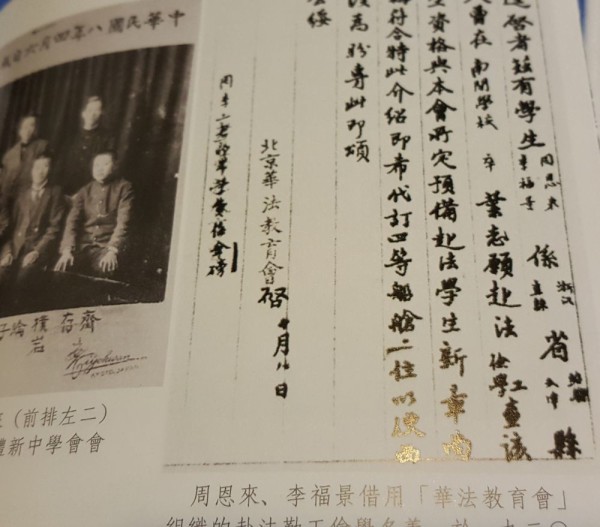 中華民國八年四月六日
逕啓者茲有學生周恩來李福景係浙江直隸省紹興天津縣
人曾在南開學校卒業志願赴法儉學工查該
生資格與本會所定預備赴法學生新章尚
符合特此介紹即希代訂四等船艙二位以便西
渡為盼專此即頌
台綏
北京華法教育會啓十月八日
周李二君
齊存樸岩
（前排左二）
新中學會會
周恩來、李福景借用「華法教育會」
組織的赴法勤工儉學名義，於一九二〇